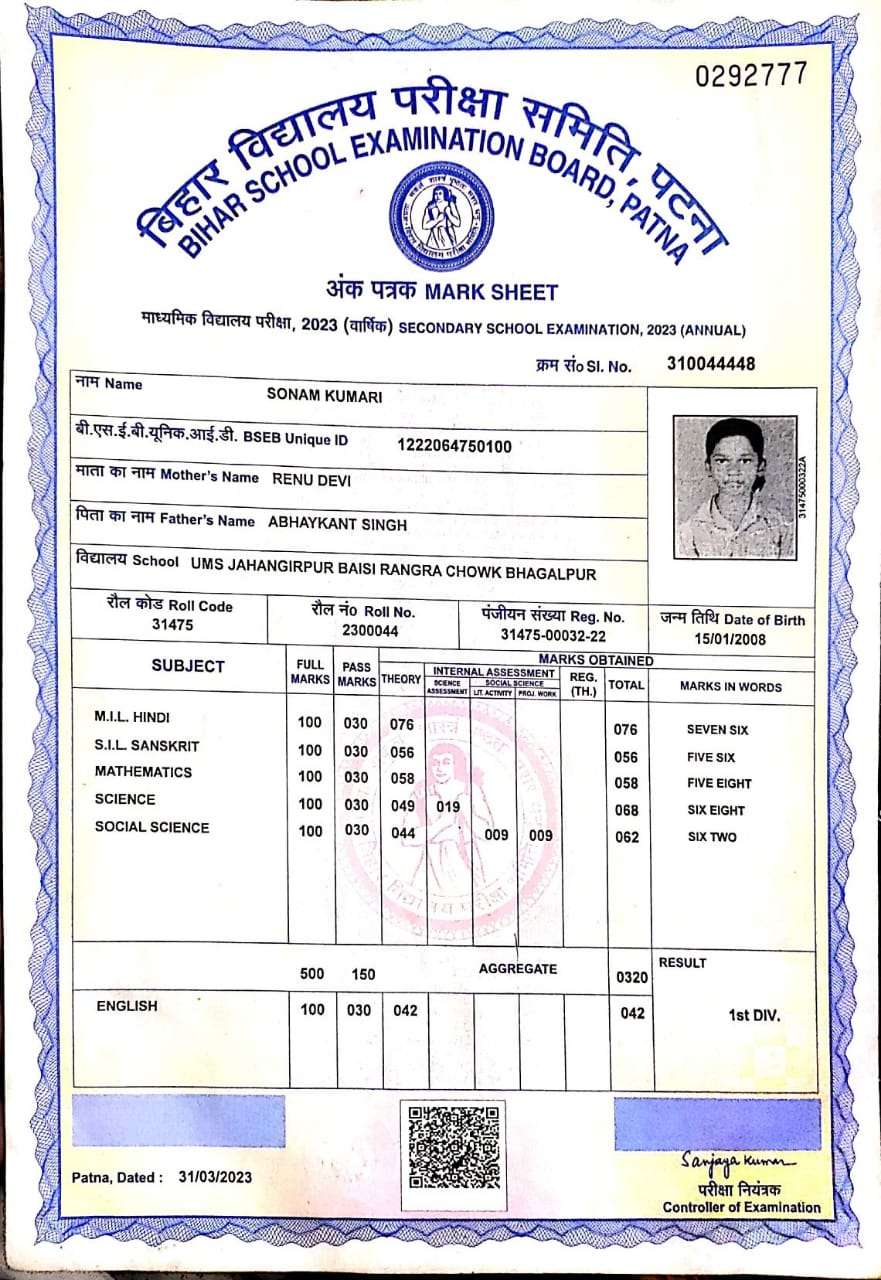 0292777
बिहार विद्यालय परीक्षा समिति, पटना
BIHAR SCHOOL EXAMINATION BOARD, PATNA
अंक पत्रक MARK SHEET
माध्यमिक विद्यालय परीक्षा, 2023 (वार्षिक) SECONDARY SCHOOL EXAMINATION, 2023 (ANNUAL)
क्रम सं० Sl. No. 310044448
नाम Name SONAM KUMARI
बी.एस.ई.बी.यूनिक.आई.डी. BSEB Unique ID 1222064750100
माता का नाम Mother's Name RENU DEVI
पिता का नाम Father's Name ABHAYKANT SINGH
विद्यालय School UMS JAHANGIRPUR BAISI RANGRA CHOWK BHAGALPUR
31475000322A
रौल कोड Roll Code रौल नं0 Roll No. पंजीयन संख्या Reg. No. जन्म तिथि Date of Birth
31475 2300044 31475-00032-22 15/01/2008
SUBJECT FULL MARKS PASS MARKS MARKS OBTAINED
THEORY INTERNAL ASSESSMENT REG. (TH.) TOTAL MARKS IN WORDS
SCIENCE ASSESSMENT SOCIAL SCIENCE
LIT. ACTIVITY PROJ. WORK
M.I.L. HINDI 100 030 076 076 SEVEN SIX
S.I.L. SANSKRIT 100 030 056 056 FIVE SIX
MATHEMATICS 100 030 058 058 FIVE EIGHT
SCIENCE 100 030 049 019 068 SIX EIGHT
SOCIAL SCIENCE 100 030 044 009 009 062 SIX TWO
500 150 AGGREGATE 0320 RESULT
ENGLISH 100 030 042 042 1st DIV.
Patna, Dated : 31/03/2023
Sanjaya Kumar
परीक्षा नियंत्रक
Controller of Examination